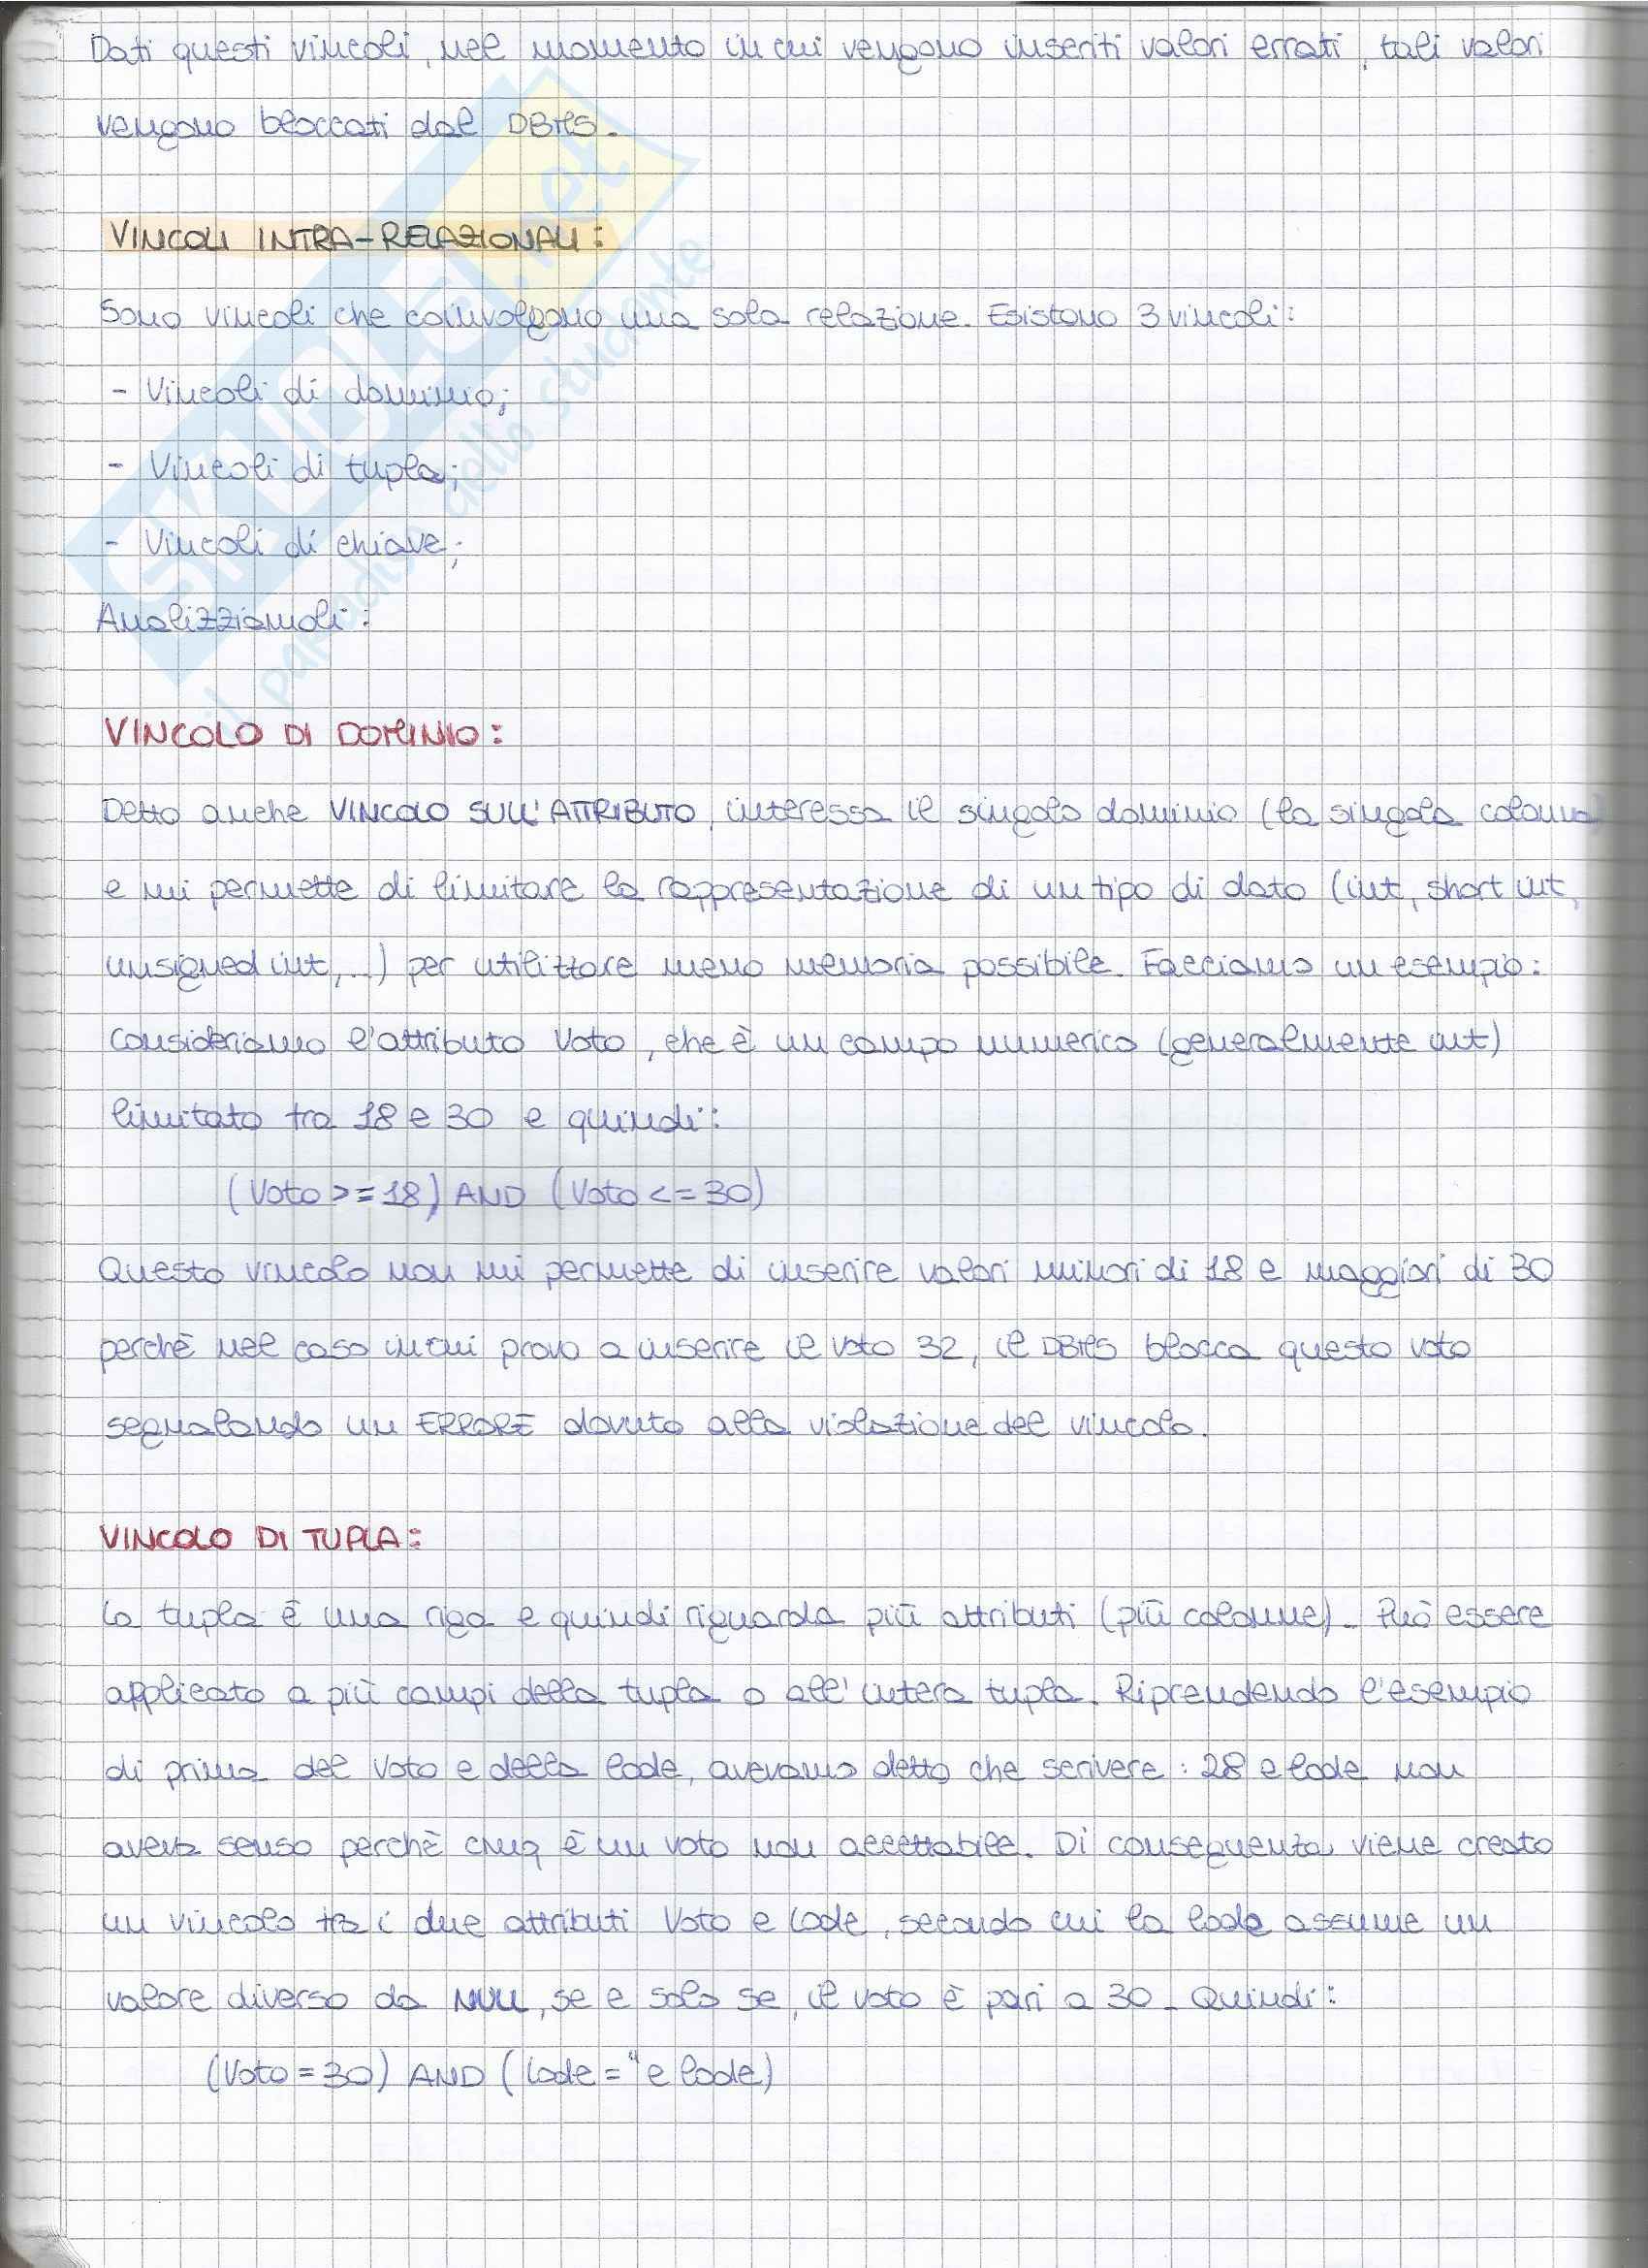 Dati questi vincoli, nel momento in cui vengono inseriti valori errati, tali valori
vengono bloccati dal DBMS.
VINCOLI INTRA-RELAZIONALI:
Sono vincoli che coinvolgono una sola relazione. Esistono 3 vincoli:
- Vincoli di dominio;
- Vincoli di tupla;
- Vincoli di chiave;
Analizziamoli:
VINCOLO DI DOMINIO:
Detto anche VINCOLO SULL'ATTRIBUTO, interessa il singolo dominio (la singola colonna)
e mi permette di limitare la rappresentazione di un tipo di dato (int, short int,
unsigned int,...) per utilizzare meno memoria possibile. Facciamo un esempio:
consideriamo l'attributo Voto, che è un campo numerico (generalmente int)
limitato tra 18 e 30 e quindi:
(Voto >= 18) AND (Voto <= 30)
Questo vincolo non mi permette di inserire valori minori di 18 e maggiori di 30
perchè nel caso in cui provo a inserire il voto 32, il DBMS blocca questo voto
segnalando un ERRORE dovuto alla violazione del vincolo.
VINCOLO DI TUPLA:
La tupla è una riga e quindi riguarda più attributi (più colonne). Può essere
applicato a più campi della tupla o all'intera tupla. Riprendendo l'esempio
di prima del Voto e della lode, avevamo detto che scrivere: 28 e lode non
aveva senso perchè cmq è un voto non accettabile. Di conseguenza, viene creato
un vincolo tra i due attributi Voto e Lode, secondo cui la lode assume un
valore diverso da NULL, se e solo se, il voto è pari a 30. Quindi:
(Voto = 30) AND (Lode = "e lode)
SKUOLA.net
il paradiso dello studente